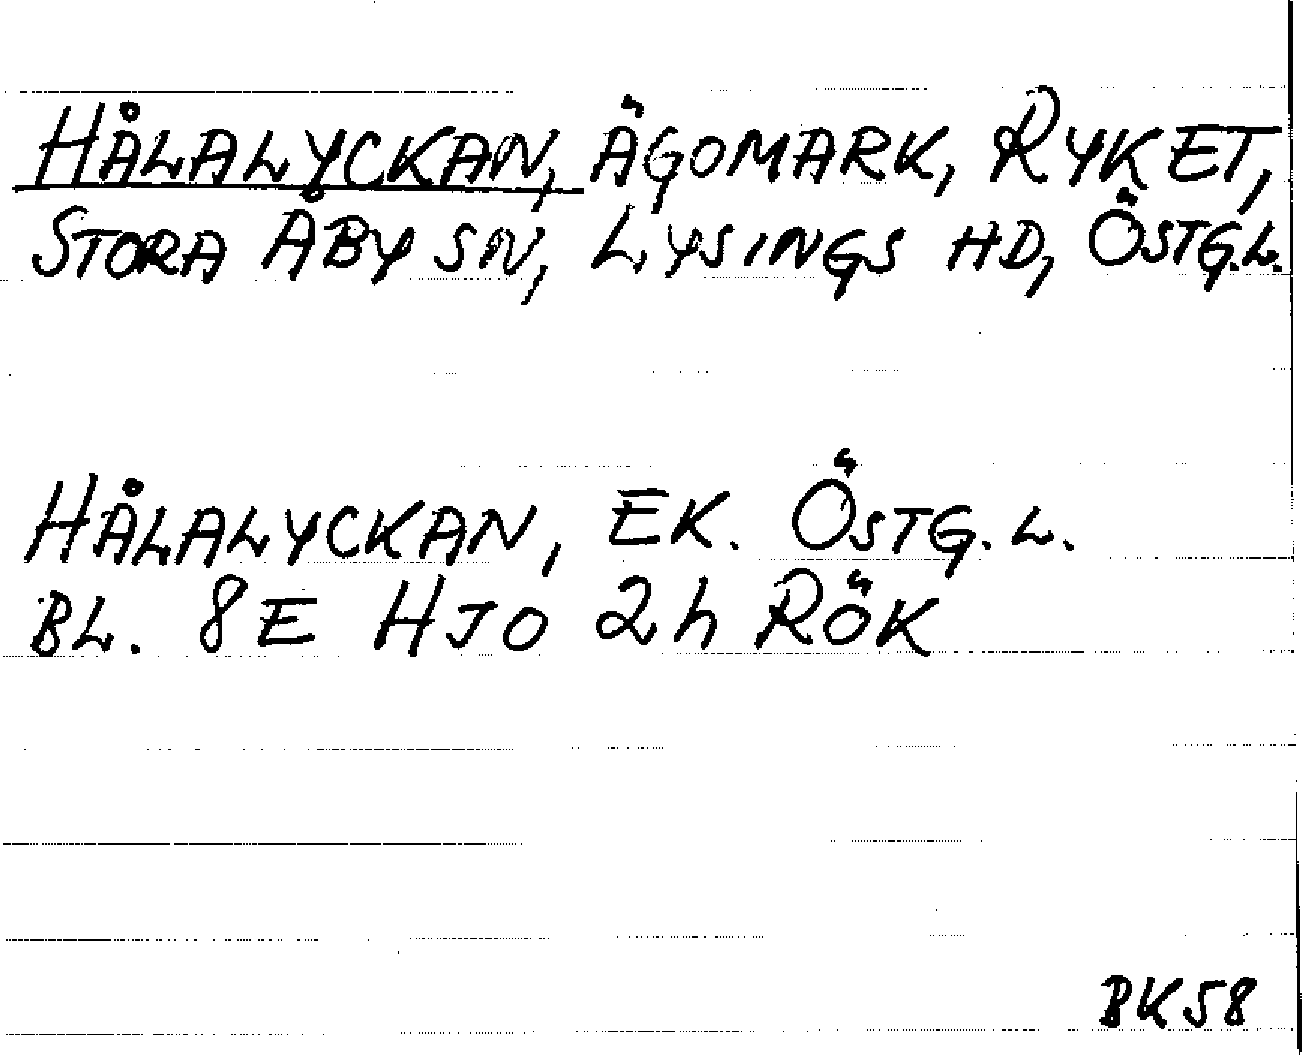 HÅLALYCKAN, ÄGOMARK, RYKET,
STORA ÅBY SN, LYSINGS HD, ÖSTG.L.
HÅLALYCKAN, EK. ÖSTG.L.
BL. 8E HJO 2h RÖK
BK58